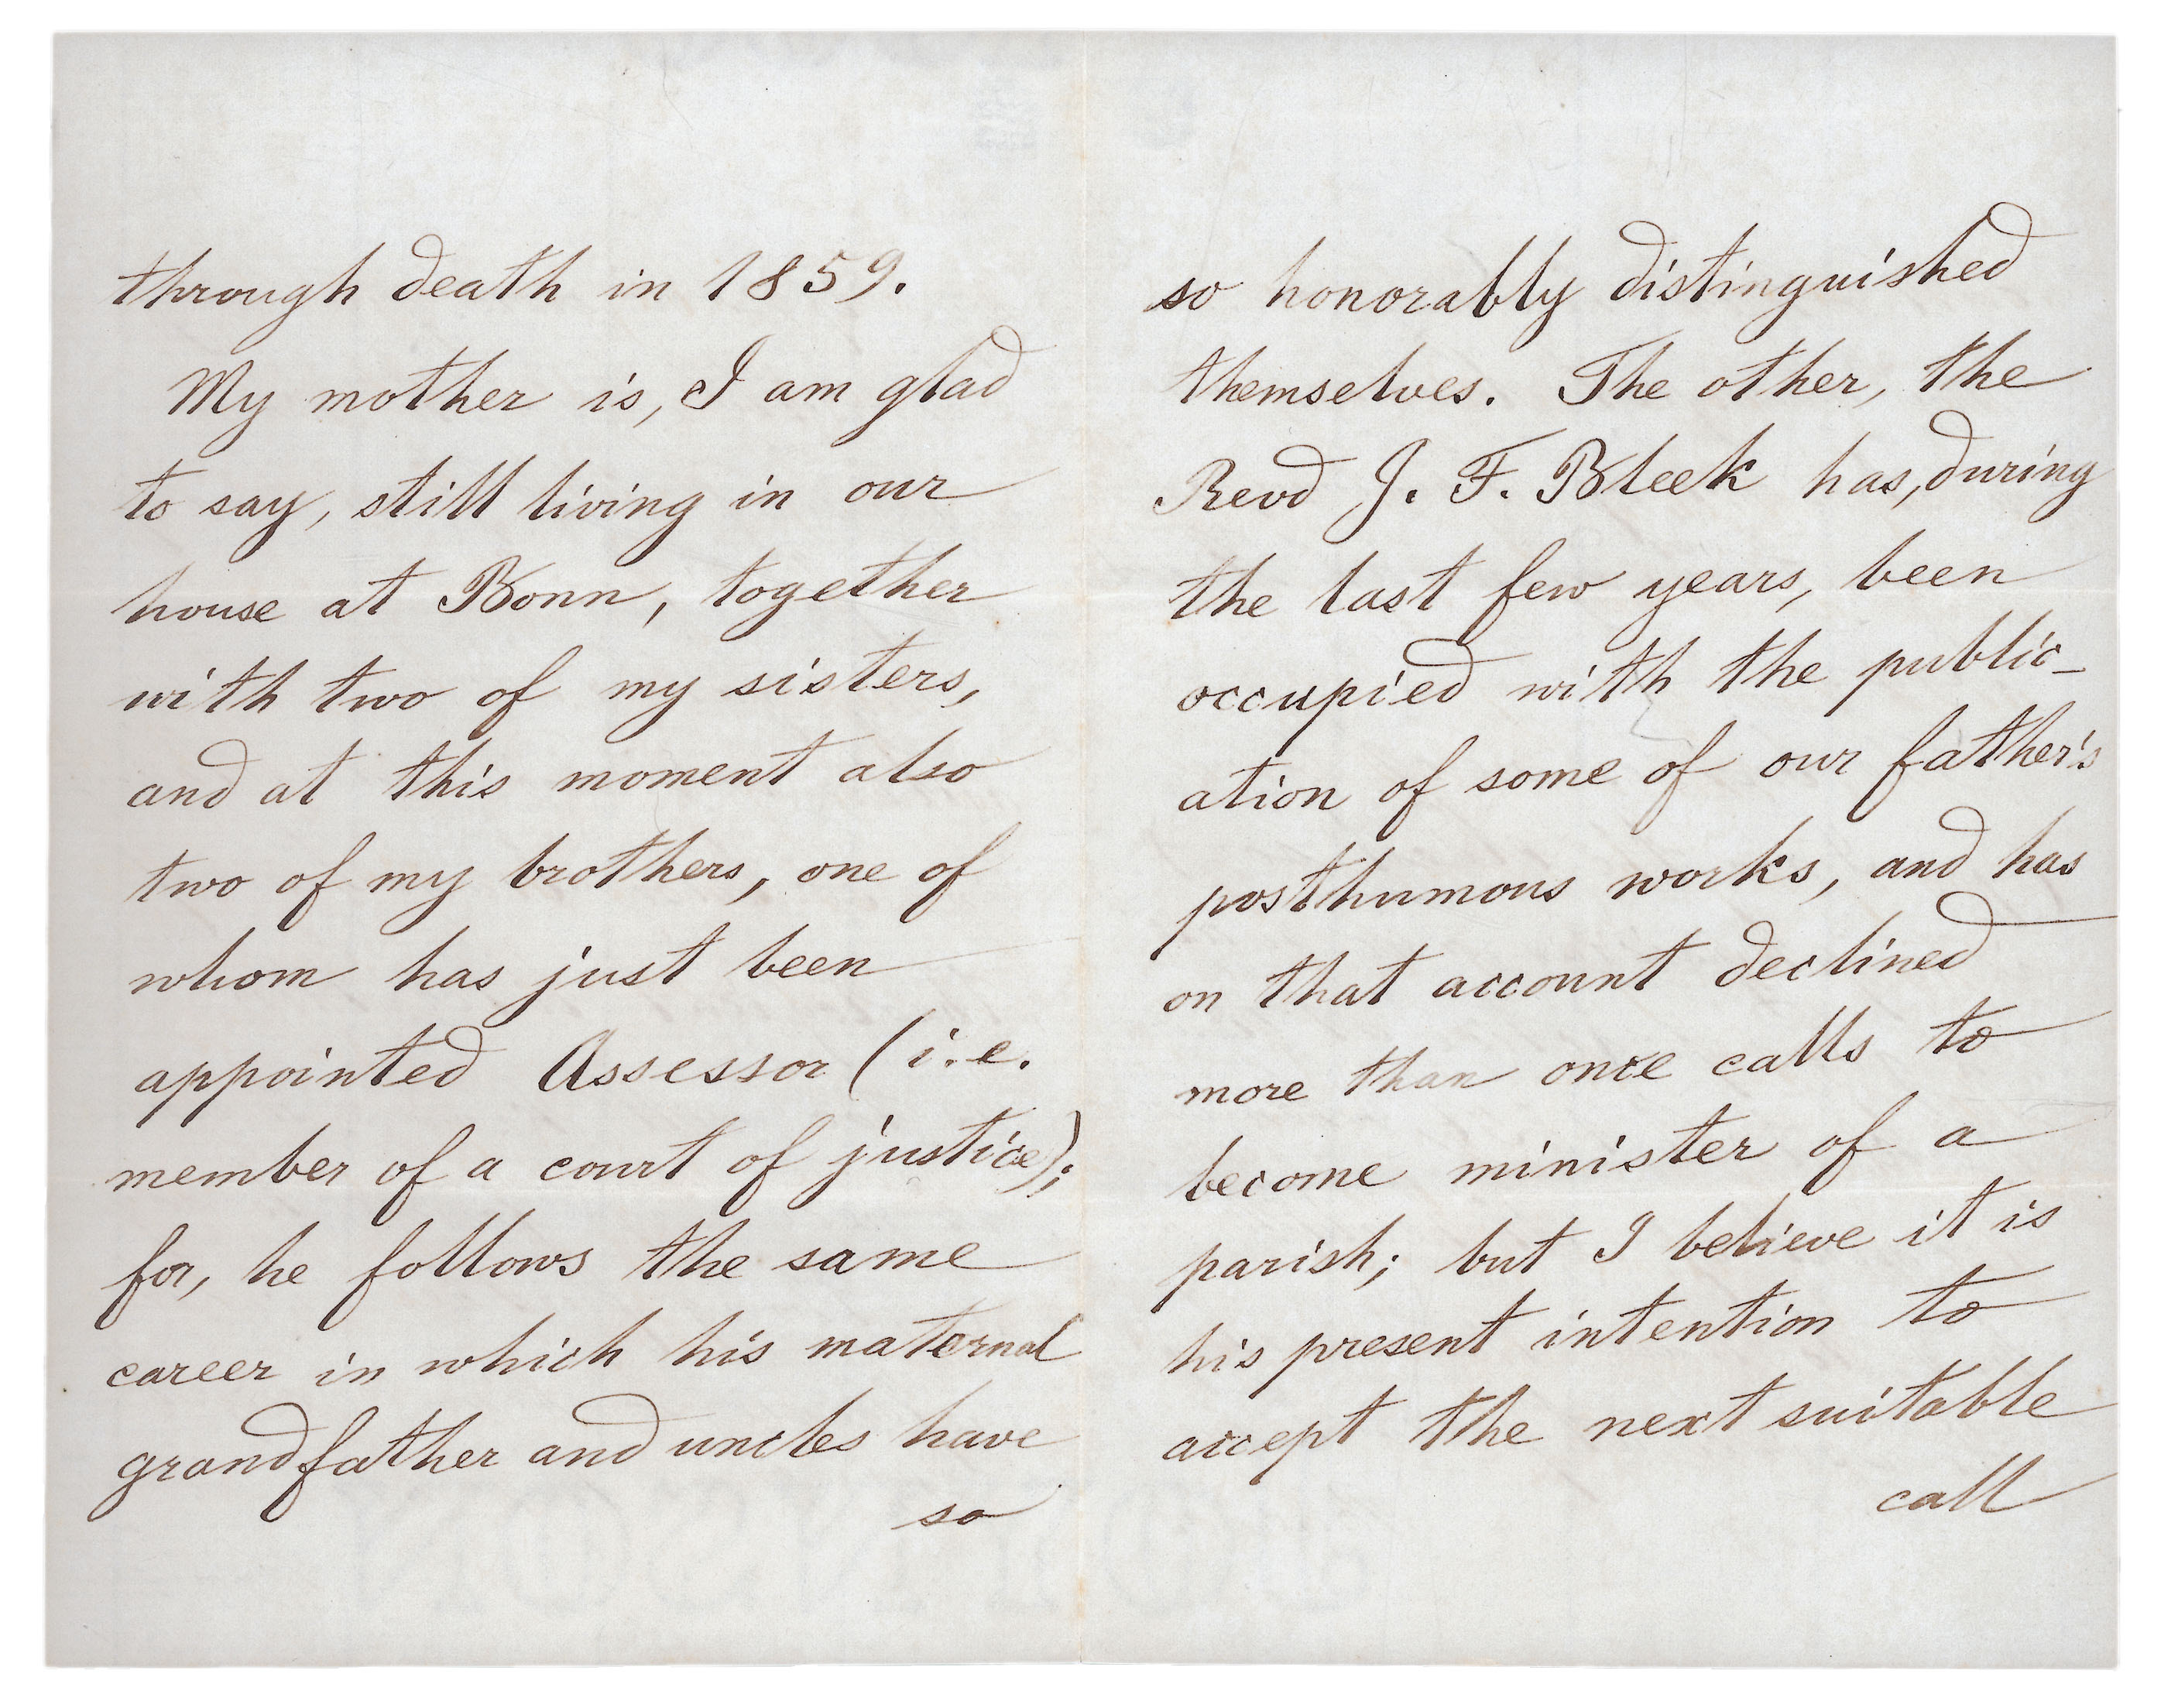 through death in 1859.
My mother is, I am glad
to say, still living in our
house at Bonn, together
with two of my sisters,
and at this moment also
two of my brothers, one of
whom has just been
appointed Assessor (i.e.
member of a court of justice);
for, he follows the same
career in which his maternal
grandfather and uncles have
so
so honorably distinguished
themselves. The other, the
Revd J. F. Bleek has, during
the last few years, been
occupied with the public-
ation of some of our father's
posthumous works, and has
on that account declined
more than once calls to
become minister of a
parish; but I believe it is
his present intention to
accept the next suitable
call